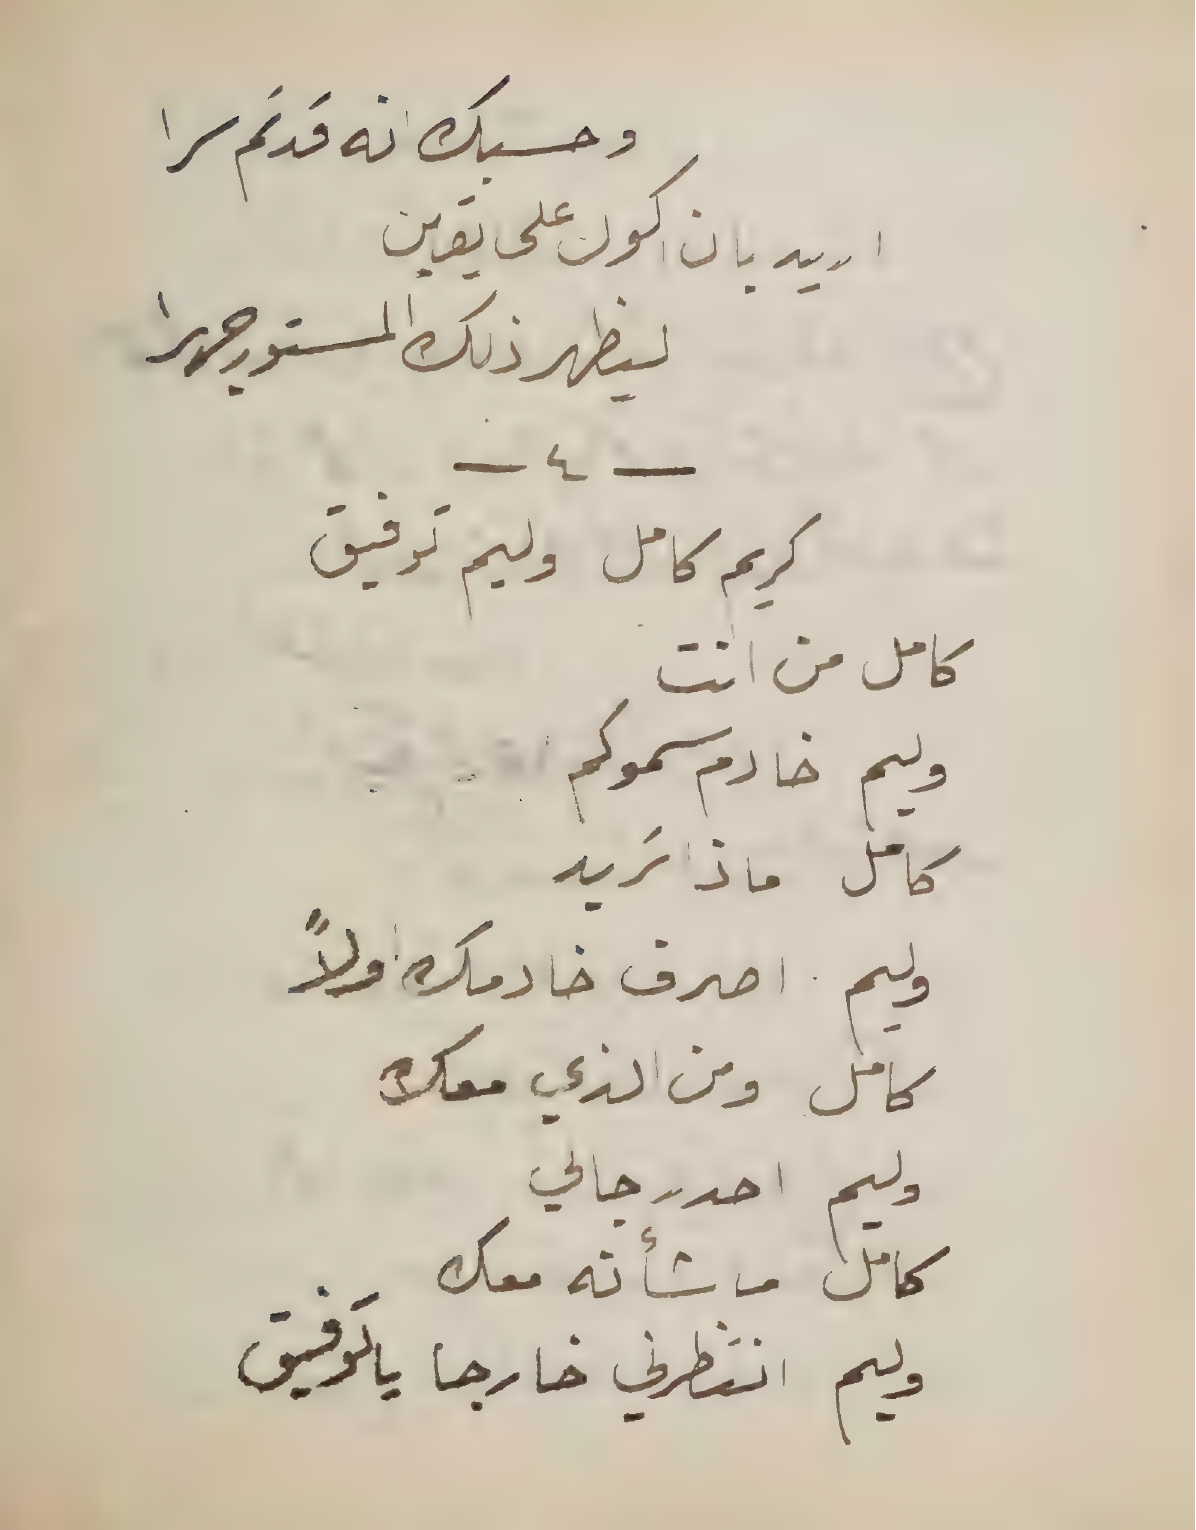 وحسبك انه قد تم سرا
اريد بان اكون على يقين
ليظهر ذلك المستور جهرا
— ٤ —
كريم كامل وليم توفيق
كامل من انت
وليم خادم سموكم
كامل ماذا تريد
وليم اصرف خادمك اولاً
كامل ومن الذي معك
وليم احد رجالي
كامل ما شأنه معك
وليم انتظرني خارجا يا توفيق